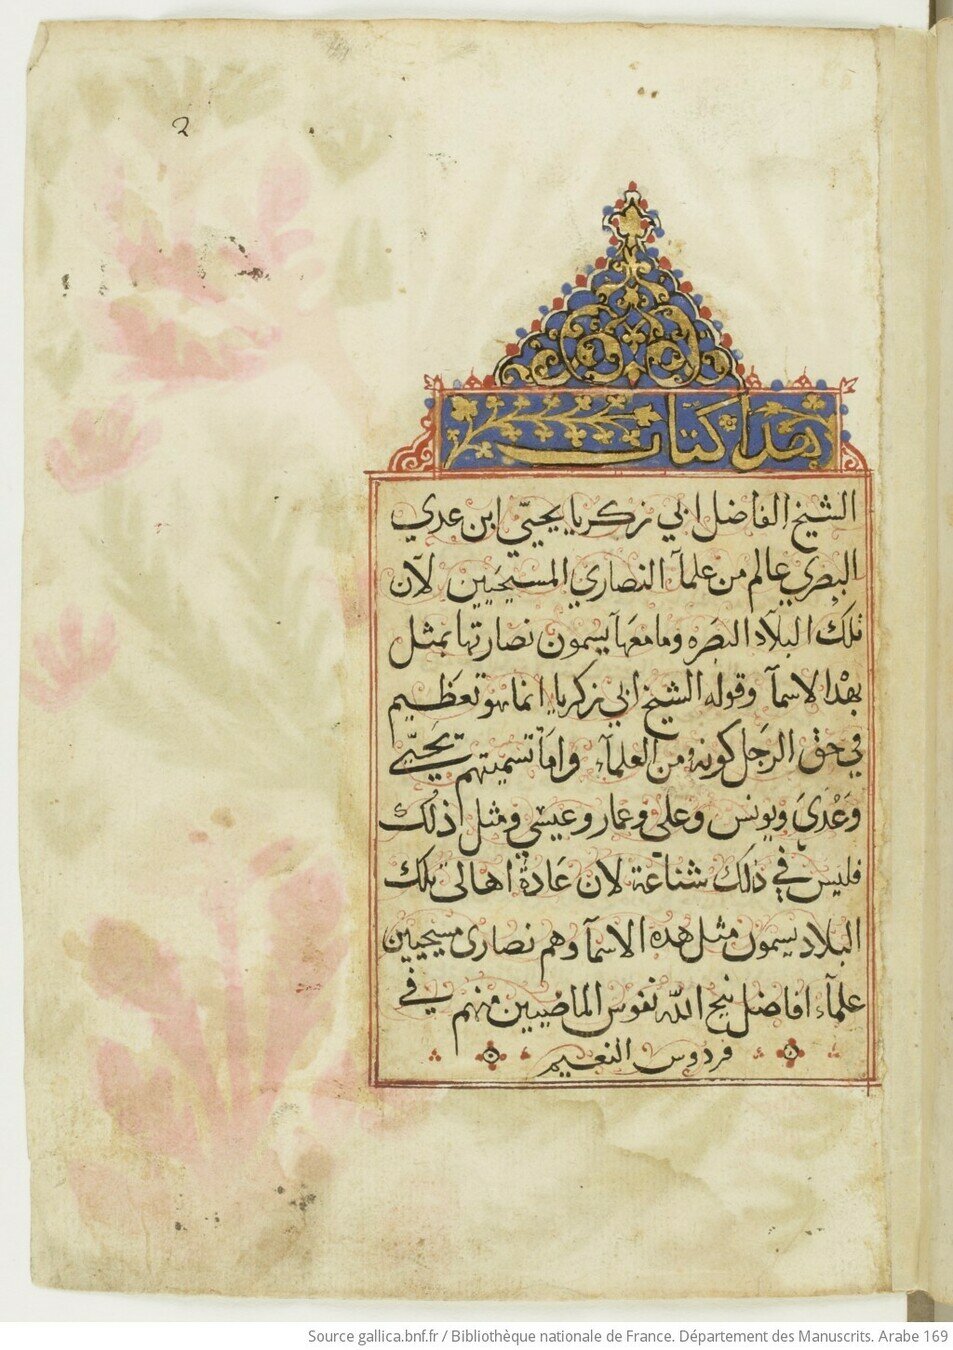 2
هذا كتاب
الشيخ الفاضل ابي زكريا يحيّي ابن عدي
البصري عالم من علمآ النصاري المسيحيين لآن
تلك البلآد البصره وما معهآ يسمون نصارتها بمثل
هذا الاسمآ وقوله الشيخ ابي زكريا انما هو تعظيم
في حق الرجل كونه من العلمآء واما تسميتهم يحيّي
وعُدَيَ ويونس وعلي وعمار وعيسي ومثل اذلك
فليس في ذلك شناعة لان عَادة اهالى تلك
البلاد يسمون مثل هذه الاسمآ وهم نصارى مسيحيين
علمآء افاضل نيح الله نفوس الماضيين منهم في
فردوس النعيم
Source gallica.bnf.fr / Bibliothèque nationale de France. Département des Manuscrits. Arabe 169